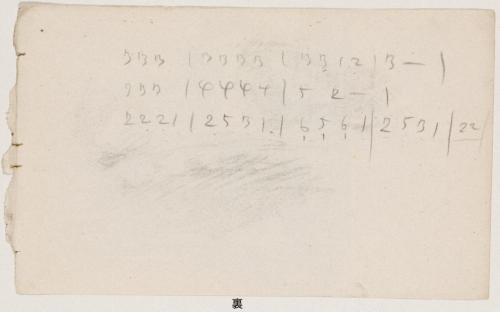 333 | 3333 | 3312 | 3 — |
333 | 4444 | 5 2 — |
2221 | 2531. | 6561 | 2531 | 22
裏